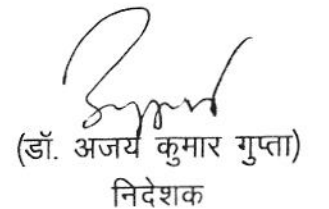 (डॉ. अजय कुमार गुप्ता)
निदेशक